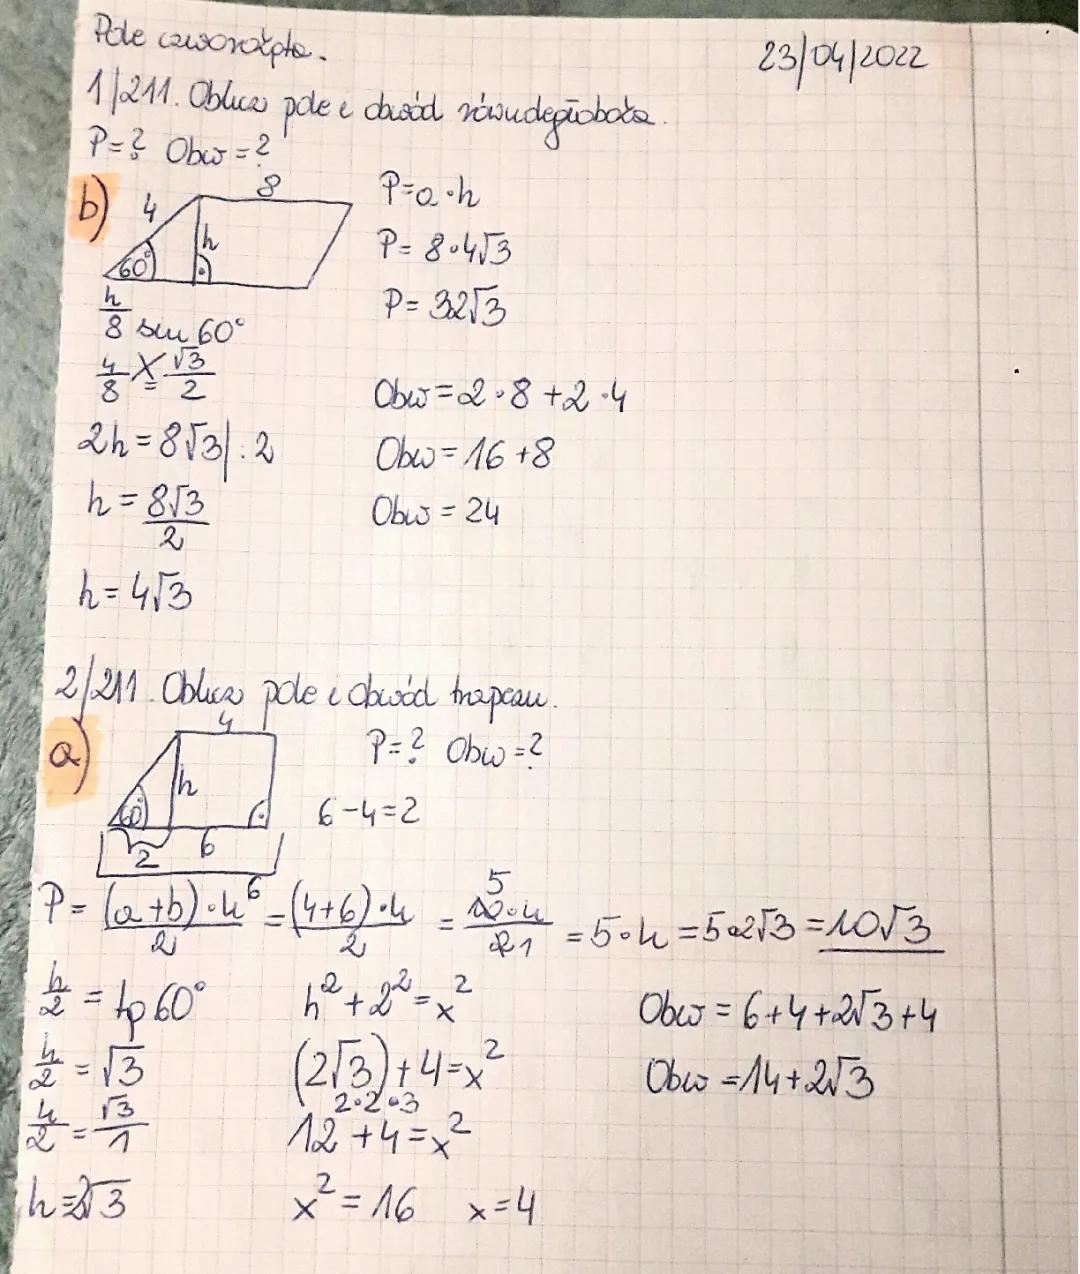 Pole czworokąta.
23/04/2022
1/211. Oblicz pole i obwód równoległoboku.
P=? Obw=?
b)
4
8
h
60°
P=a·h
P= 8·4√3
P= 32√3
h/8 sin 60°
4/8 = √3/2
2h=8√3|:2
h= 8√3/2
h= 4√3
Obw=2·8+2·4
Obw=16+8
Obw=24
2/211. Oblicz pole i obwód trapezu.
a)
4
h
60°
2
6
6
P=? Obw=?
6-4=2
P= (a+b)·h/2 = (4+6)·h/2 = 5 10·h/2 1 =5·h=5·2√3=10√3
h/2 = tg 60°
h/2 = √3
h/2 = √3/1
h=2√3
h²+2²=x²
(2√3)+4=x²
2·2·3
12+4=x²
x²=16 x=4
Obw=6+4+2√3+4
Obw=14+2√3